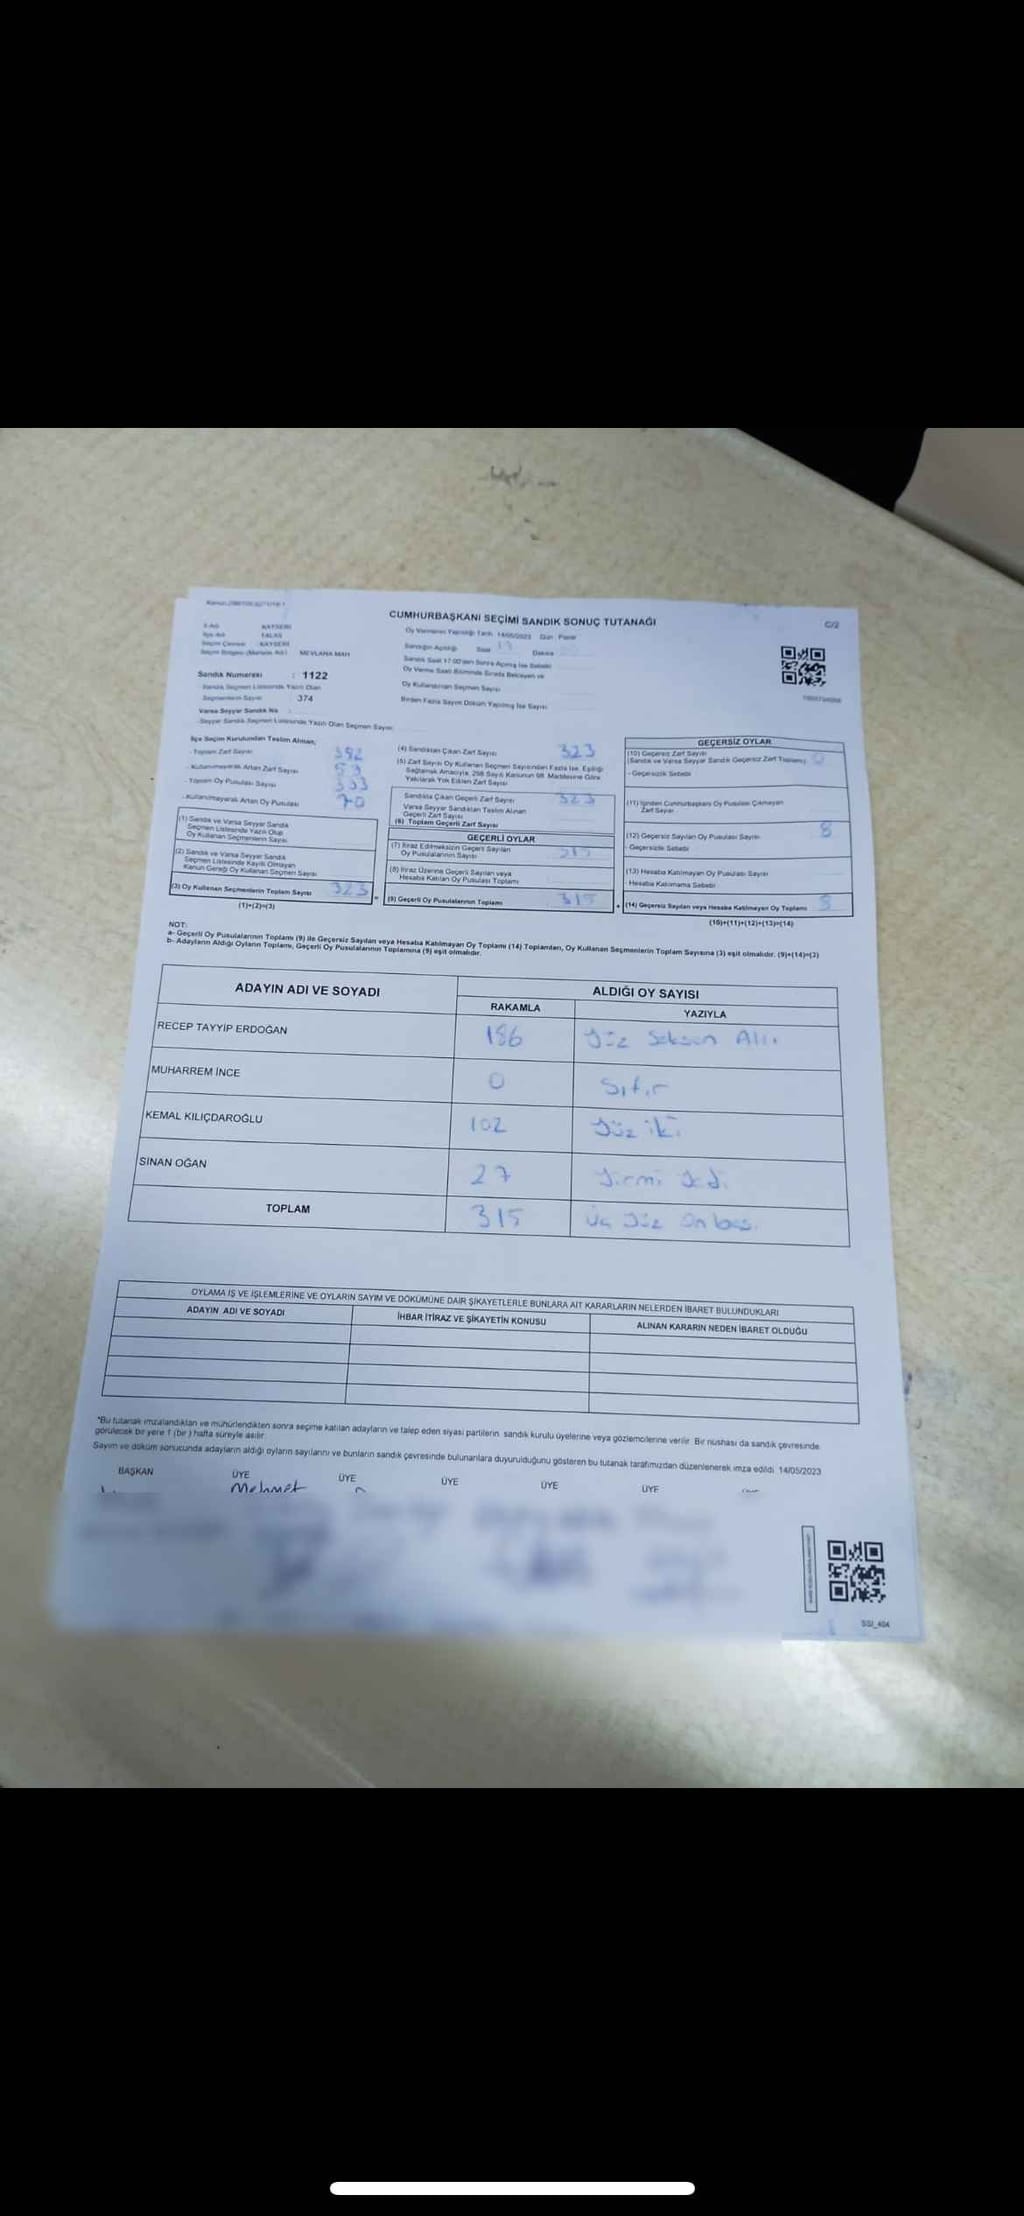 CUMHURBAŞKANI SEÇİMİ SANDIK SONUÇ TUTANAĞI
C/2
İl Adı KAYSERİ
İlçe Adı TALAS
Seçim Çevresi KAYSERİ
Seçim Bölgesi (Mahalle Adı) MEVLANA MAH
Oy Vermenin Yapıldığı Tarih 14/05/2023 Gün Pazar
Sandığın Açıldığı Saat 17 Dakika
Sandık Saat 17.00'den Sonra Açılmış İse Sebebi
Oy Verme Saati Bitiminde Sırada Bekleyen ve
Oy Kullandırılan Seçmen Sayısı
Birden Fazla Sayım Döküm Yapılmış İse Sayısı
Sandık Numarası : 1122
Sandık Seçmen Listesinde Yazılı Olan
Seçmenlerin Sayısı 374
Varsa Seyyar Sandık No :
-Seyyar Sandık Seçmen Listesinde Yazılı Olan Seçmen Sayısı
İlçe Seçim Kurulundan Teslim Alınan;
- Toplam Zarf Sayısı
- Kullanılmayarak Artan Zarf Sayısı
- Toplam Oy Pusulası Sayısı
- Kullanılmayarak Artan Oy Pusulası 70
(1) Sandık ve Varsa Seyyar Sandık
Seçmen Listesinde Yazılı Olup
Oy Kullanan Seçmenlerin Sayısı
(2) Sandık ve Varsa Seyyar Sandık
Seçmen Listesinde Kayıtlı Olmayan
Kanun Gereği Oy Kullanan Seçmen Sayısı
(3) Oy Kullanan Seçmenlerin Toplam Sayısı 323
(1)+(2)=(3)
(4) Sandıktan Çıkan Zarf Sayısı 323
(5) Zarf Sayısı Oy Kullanan Seçmen Sayısından Fazla İse, Eşitliği
Sağlamak Amacıyla, 298 Sayılı Kanunun 98. Maddesine Göre
Yakılarak Yok Edilen Zarf Sayısı
Sandıkta Çıkan Geçerli Zarf Sayısı 323
Varsa Seyyar Sandıktan Teslim Alınan
Geçerli Zarf Sayısı
(6) Toplam Geçerli Zarf Sayısı
GEÇERLİ OYLAR
(7) İtiraz Edilmeksizin Geçerli Sayılan
Oy Pusulalarının Sayısı 315
(8) İtiraz Üzerine Geçerli Sayılan veya
Hesaba Katılan Oy Pusulası Toplamı
(9) Geçerli Oy Pusulalarının Toplamı 315
GEÇERSİZ OYLAR
(10) Geçersiz Zarf Sayısı
(Sandık ve Varsa Seyyar Sandık Geçersiz Zarf Toplamı) 0
- Geçersizlik Sebebi
(11) İçinden Cumhurbaşkanı Oy Pusulası Çıkmayan
Zarf Sayısı
(12) Geçersiz Sayılan Oy Pusulası Sayısı 8
- Geçersizlik Sebebi
(13) Hesaba Katılmayan Oy Pusulası Sayısı
- Hesaba Katılmama Sebebi
(14) Geçersiz Sayılan veya Hesaba Katılmayan Oy Toplamı 8
(10)+(11)+(12)+(13)=(14)
NOT:
a- Geçerli Oy Pusulalarının Toplamı (9) ile Geçersiz Sayılan veya Hesaba Katılmayan Oy Toplamı (14) Toplamları, Oy Kullanan Seçmenlerin Toplam Sayısına (3) eşit olmalıdır. (9)+(14)=(3)
b- Adayların Aldığı Oyların Toplamı, Geçerli Oy Pusulalarının Toplamına (9) eşit olmalıdır.
ADAYIN ADI VE SOYADI
ALDIĞI OY SAYISI
RAKAMLA YAZIYLA
RECEP TAYYİP ERDOĞAN 186 Yüz Seksen Altı
MUHARREM İNCE 0 Sıfır
KEMAL KILIÇDAROĞLU 102 Yüz iki
SİNAN OĞAN 27 Yirmi Yedi
TOPLAM 315 Üç Yüz On beş
OYLAMA İŞ VE İŞLEMLERİNE VE OYLARIN SAYIM VE DÖKÜMÜNE DAİR ŞİKAYETLERLE BUNLARA AİT KARARLARIN NELERDEN İBARET BULUNDUKLARI
ADAYIN ADI VE SOYADI İHBAR İTİRAZ VE ŞİKAYETİN KONUSU ALINAN KARARIN NEDEN İBARET OLDUĞU
*Bu tutanak imzalandıktan ve mühürlendikten sonra seçime katılan adayların ve talep eden siyasi partilerin sandık kurulu üyelerine veya gözlemcilerine verilir. Bir nüshası da sandık çevresinde
görülecek bir yere 1 (bir) hafta süreyle asılır.
Sayım ve döküm sonucunda adayların aldığı oyların sayılarını ve bunların sandık çevresinde bulunanlara duyurulduğunu gösteren bu tutanak tarafımızdan düzenlenerek imza edildi. 14/05/2023
BAŞKAN ÜYE ÜYE ÜYE ÜYE ÜYE
Mehmet